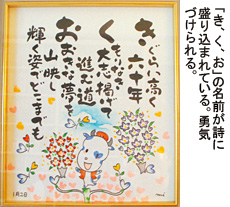 「き、く、お」の名前が詩に
盛り込まれている。勇気
づけられる。
きぐらい高く
六十年
くもりなき
大志掲げて
進む道
おおきな夢を
山映し
輝く姿でどこまでも